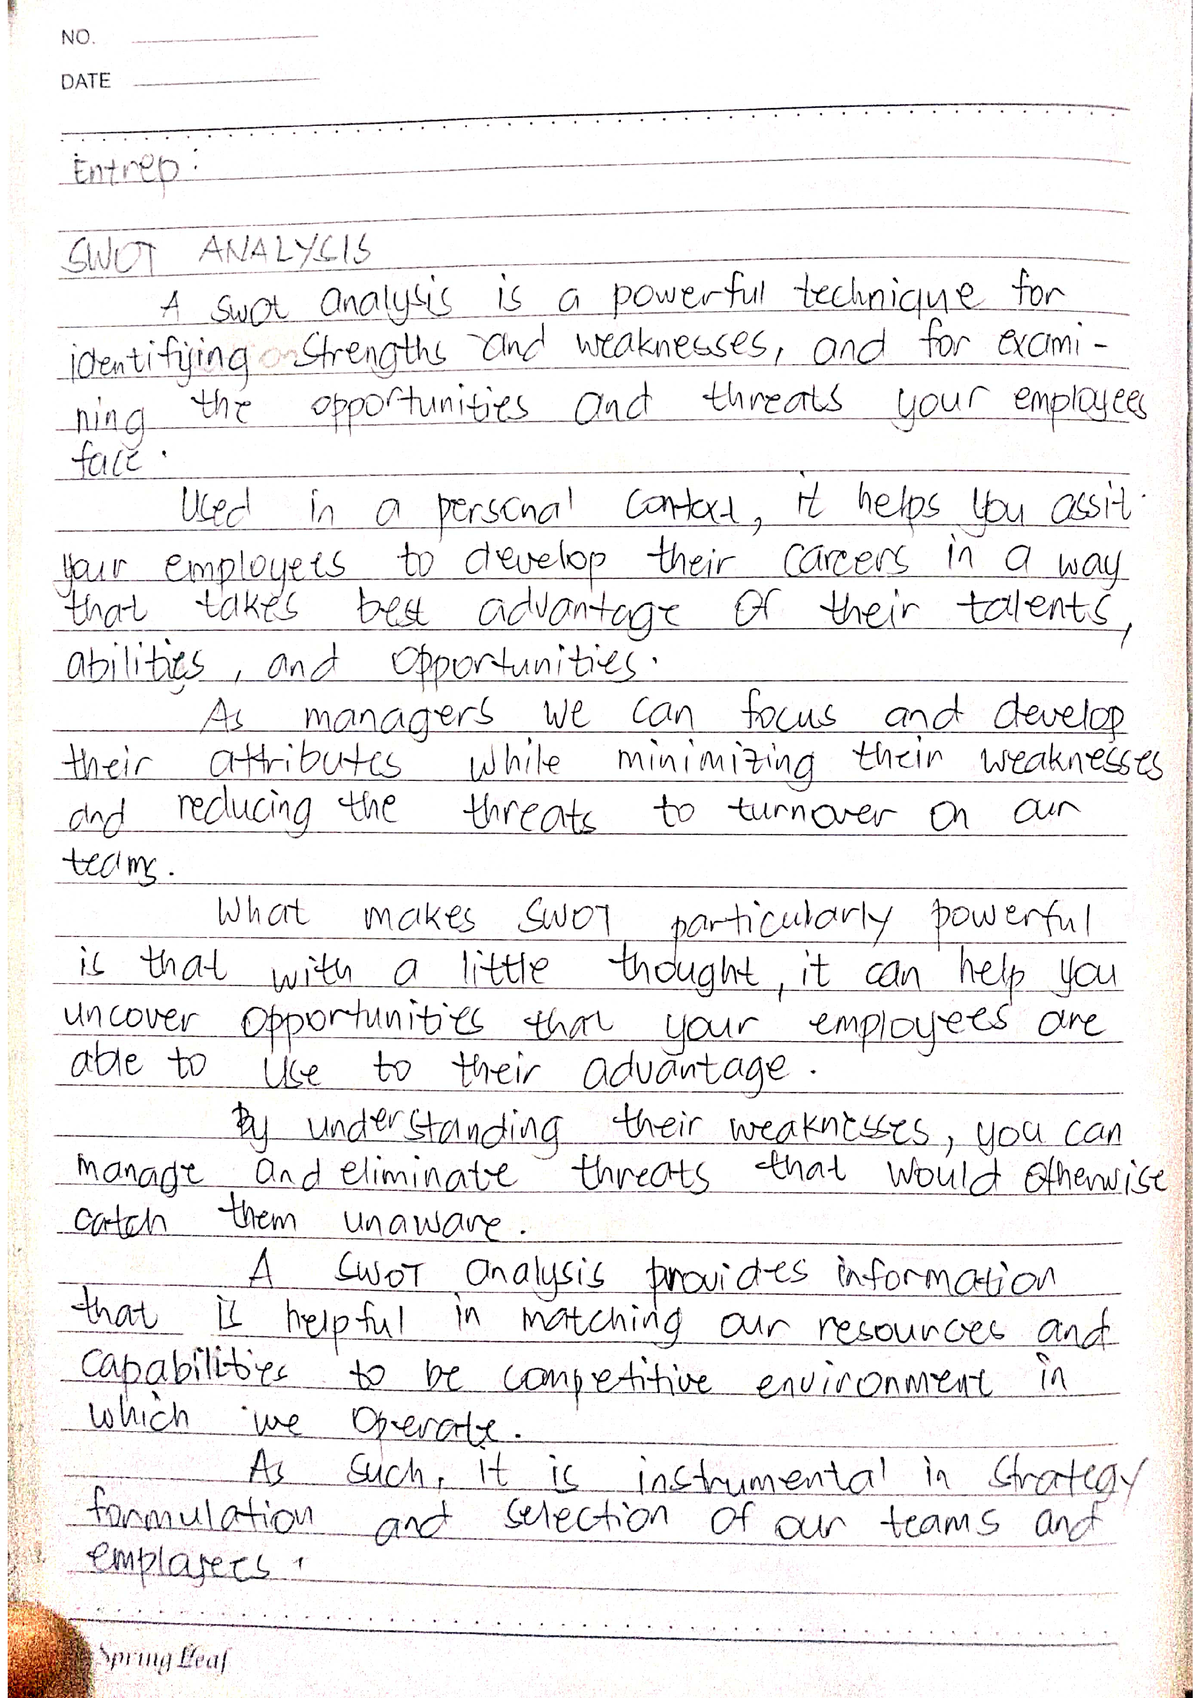 NO.
DATE
Entrep:
SWOT ANALYSIS
A swot analysis is a powerful technique for
identifying strengths and weaknesses, and for exami-
ning the opportunities and threats your employees
face.
Used in a personal context, it helps you assit
your employees to develop their careers in a way
that takes best advantage of their talents,
abilities, and opportunities.
As managers we can focus and develop
their attributes while minimizing their weaknesses
and reducing the threats to turnover on our
teams.
What makes SWOT particularly powerful
is that with a little thought, it can help you
uncover opportunities that your employees are
able to use to their advantage.
By understanding their weaknesses, you can
manage and eliminate threats that would otherwise
catch them unaware.
A SWOT analysis provides information
that is helpful in matching our resources and
capabilities to be competitive environment in
which we operate.
As such, it is instrumental in strategy
formulation and selection of our teams and
employees.
Spring Leaf